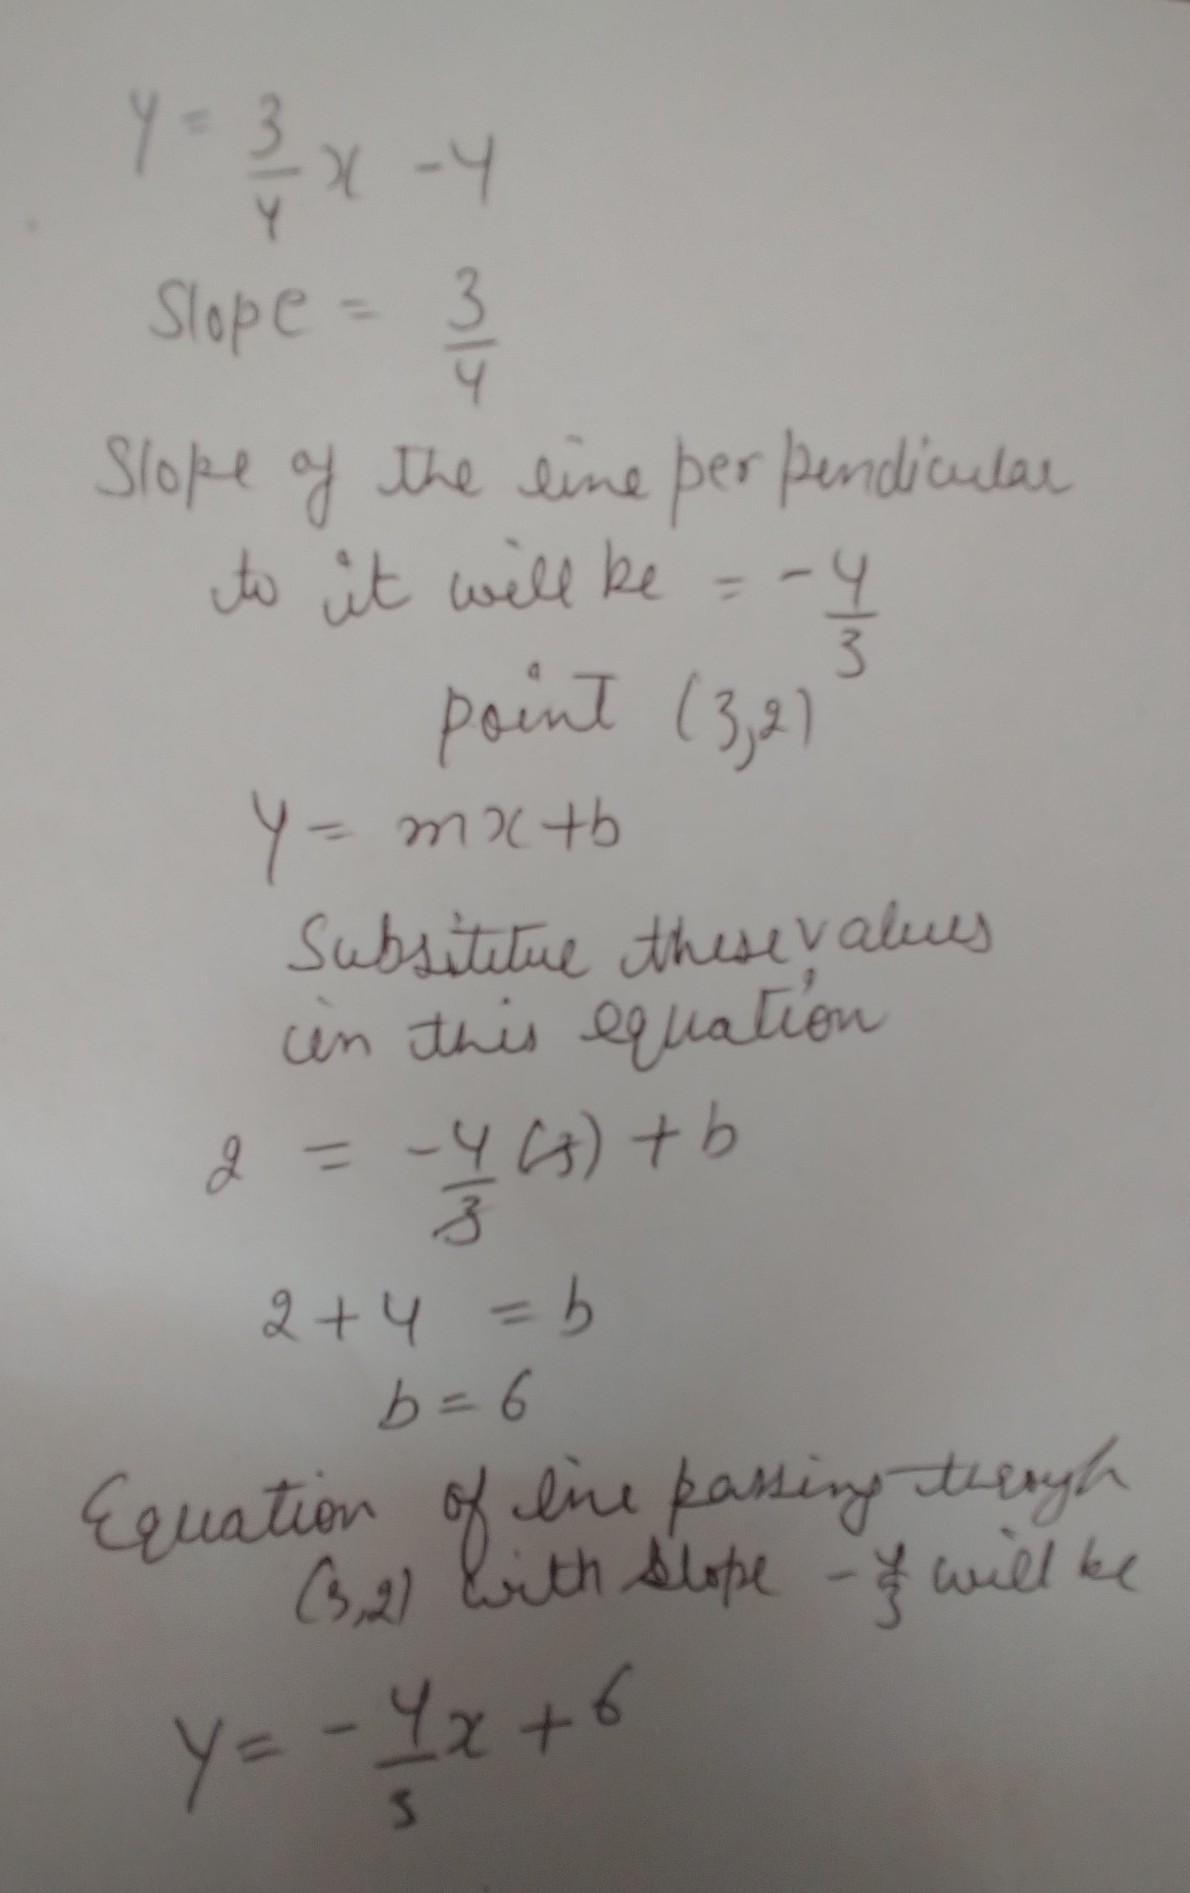 y = 3/4 x - 4
Slope = 3/4
Slope of the line perpendicular
to it will be = -4/3
point (3,2)
y = mx+b
Subsititue these values
in this equation
2 = -4/3 (3) + b
2+4 = b
b = 6
Equation of line passing through
(3,2) with slope -4/3 will be
y = -4/3 x + 6